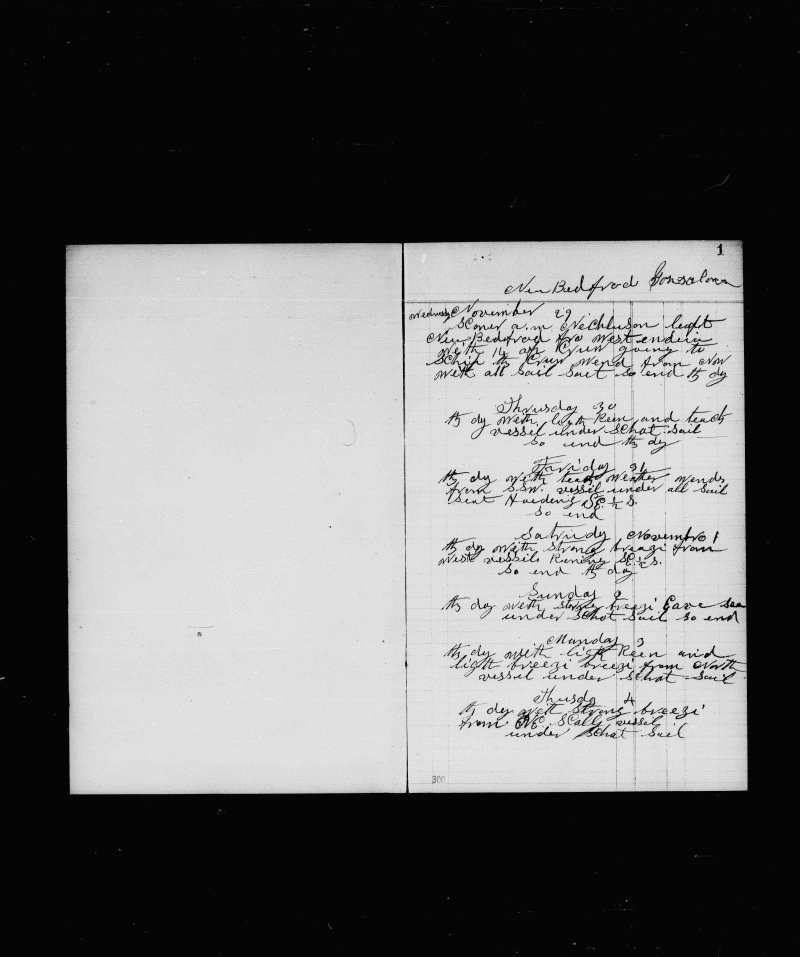 1
New Bedfrod Gonsalown
Wednesdy November 29
Sconer a.m Nichluson left
New Bedofrod fro West endiin
With 14 an Cruw going to
Schip th Cruw Wend from NW
With all Sail Sact so end th dy
Thrusday 30
th dy With ligth Reen and teack
vessel under Schat Sail
So end th dy
Friday 31
th dy With teack Wenther Wends
from S.SW. vessil under all Sail
Seat Harding SE ½ S.
So end
Satridy Novembro 1
th dy With Strong breezi from
West vessils Runing SE ½ S.
So end th day
Sunday 2
th day With Strong breezi Eave Sea
under Schat Sail So end
Munday 3
th dy With ligth Reen and
ligth breezi breezi from North
vessil under Schat Sail
Thusda 4
th dy With Strong breezi
from NE Scally vessil
under Schat Sail
300